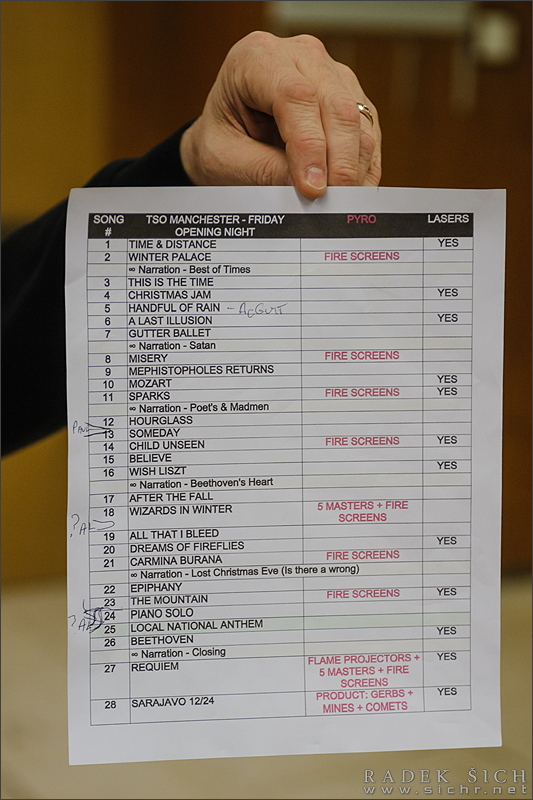 SONG # TSO MANCHESTER - FRIDAY OPENING NIGHT PYRO LASERS
1 TIME & DISTANCE YES
2 WINTER PALACE FIRE SCREENS
∞ Narration - Best of Times
3 THIS IS THE TIME
4 CHRISTMAS JAM YES
5 HANDFUL OF RAIN - AcGUIT
6 A LAST ILLUSION YES
7 GUTTER BALLET
∞ Narration - Satan
8 MISERY FIRE SCREENS
9 MEPHISTOPHOLES RETURNS
10 MOZART YES
11 SPARKS FIRE SCREENS YES
∞ Narration - Poet's & Madmen
12 HOURGLASS
13 SOMEDAY
14 CHILD UNSEEN FIRE SCREENS YES
15 BELIEVE
16 WISH LISZT YES
∞ Narration - Beethoven's Heart
17 AFTER THE FALL
18 WIZARDS IN WINTER 5 MASTERS + FIRE SCREENS
19 ALL THAT I BLEED
20 DREAMS OF FIREFLIES YES
21 CARMINA BURANA FIRE SCREENS
∞ Narration - Lost Christmas Eve (Is there a wrong)
22 EPIPHANY
23 THE MOUNTAIN FIRE SCREENS YES
24 PIANO SOLO
25 LOCAL NATIONAL ANTHEM
26 BEETHOVEN YES
∞ Narration - Closing
27 REQUIEM FLAME PROJECTORS + 5 MASTERS + FIRE SCREENS YES
28 SARAJAVO 12/24 PRODUCT: GERBS + MINES + COMETS YES
RADEK ŠICH
www.sichr.net